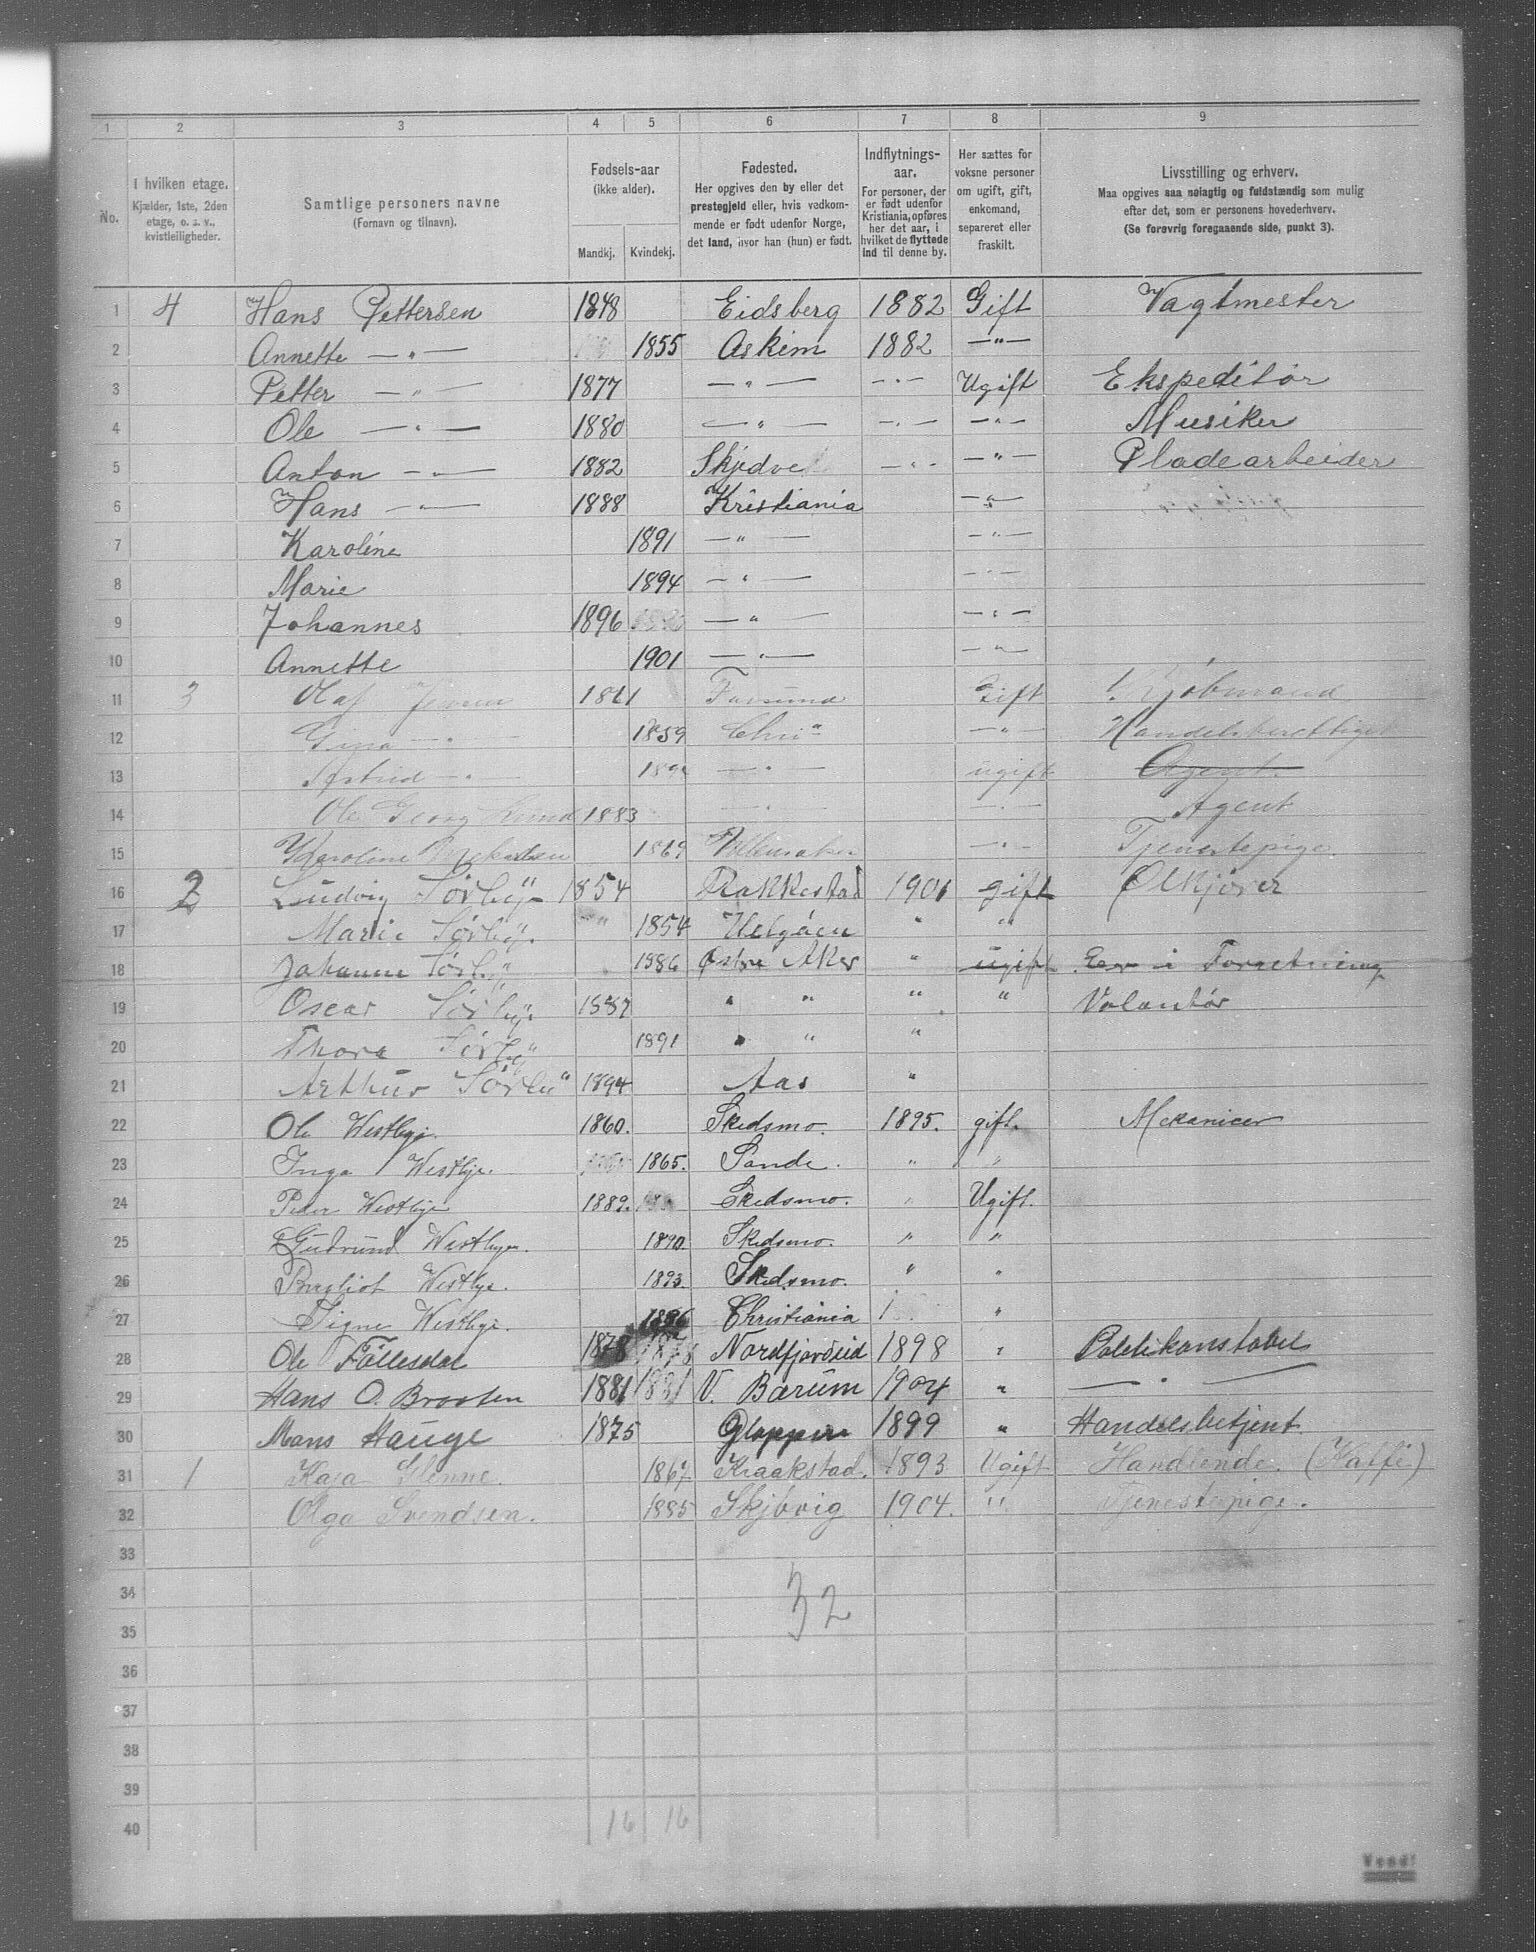 1 2 3 4 5 6 7 8 9
No. I hvilken etage. Kjælder, 1ste, 2den etage, o. s. v., kvistleiligheder. Samtlige personers navne (Fornavn og tilnavn). Fødsels-aar (ikke alder). Mandkj. Kvindekj. Fødested. Her opgives den by eller det prestegjeld eller, hvis vedkommende er født udenfor Norge, det land, hvor han (hun) er født. Indflytnings-aar. For personer, der er født udenfor Kristiania, opføres her det aar, i hvilket de flyttede ind til denne by. Her sættes for voksne personer om ugift, gift, enkemand, separeret eller fraskilt. Livsstilling og erhverv. Maa opgives saa nøiagtig og fuldstændig som mulig efter det, som er personens hovederhverv. (Se forøvrig foregaaende side, punkt 3).
1 4 Hans Pettersen 1848 Eidsberg 1882 Gift Vagtmester
2 Annette — " — 1855 Askim 1882 — " —
3 Petter — " — 1877 — " — — " — Ugift Ekspeditør
4 Ole — " — 1880 — " — — " — — " — Musiker
5 Anton — " — 1882 — " — — " — Pladearbeider
6 Hans — " — 1888 Kristiania — " —
7 Karoline 1891 — " — — " —
8 Marie 1894 — " — — " —
9 Johannes 1896 — " — — " —
10 Annette 1901 — " — — " —
11 3 Olaf Jensen 1861 Farsund Gift Kjøbmand
12 Gina — " — 1859 Chri — " — Handelsberettiget
13 Astrid — " — — " — ugift Agent.
14 Ole Georg 1883 — " — — " — Agent
15 Karoline 1869 — " — Tjenestepige
16 2 Ludvig Sørby 1854 Rakkestad 1901 gift Ølkjører
17 Marie Sørby 1854 " "
18 Johanne Sørby 1886 Østre Aker " ugift Er i Forretning
19 Oscar Sørby 1887 " " " " Volontør
20 Thora Sørby 1891 " " "
21 Arthur Sørby 1894 Aas "
22 Ole Westbye 1860. Skedsmo. 1895. gift. Mekaniker
23 Inga Westbye. 1865. Sande. " "
24 Peder Westbye 1889. Skedsmo. " Ugift.
25 Gudrund Westbye. 1890. Skedsmo. " "
26 Westbye. 1893. Skedsmo. " "
27 Signe Westbye. 1896 Christiania "
28 Ole Føllesdal 1878 Nordfjordeid 1898 " Politikonstabel
29 Hans O. Braaten 1881 V. Bærum 1904 " — " —
30 Mons Hauge 1875 Gloppen 1899 " Handelsbetjent
31 1 Kaja Glenne. 1867 Kraakstad. 1893 Ugift Handlende. (Kaffe)
32 Olga Svendsen. 1885 Skjbvig 1904. " Tjenestepige.
33
34
32
35
36
37
38
39
40 16 16
Vend!